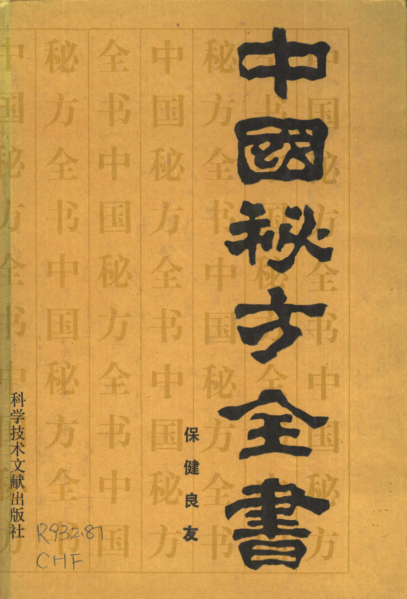 中國秘方全書
保健良友
科学技术文献出版社
R932.81
CHF